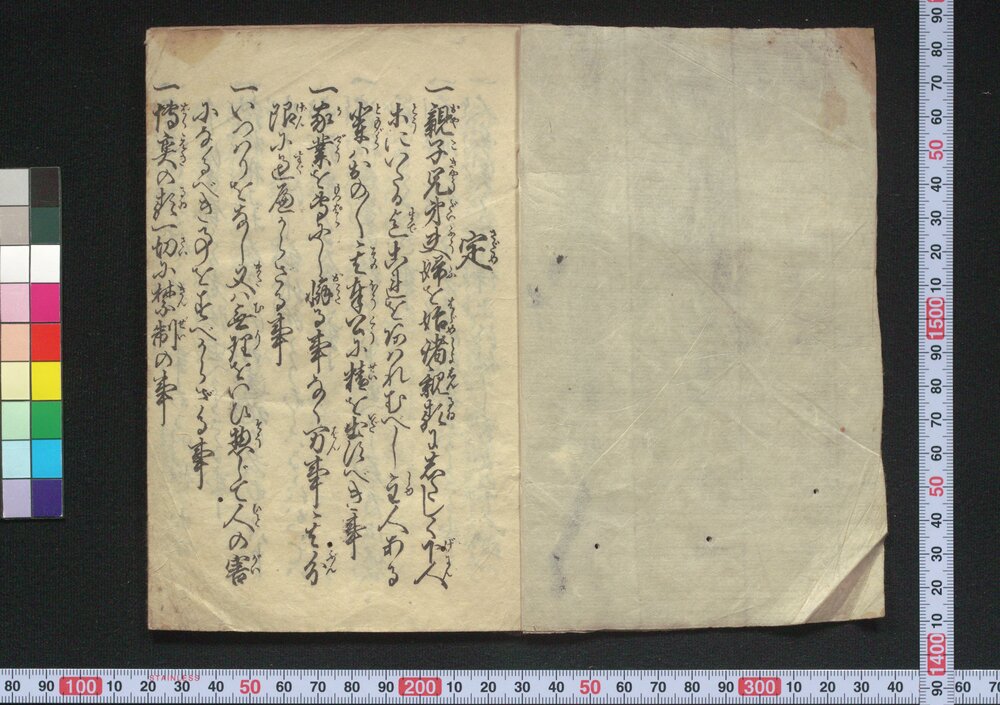 定
一親子兄弟夫婦を始諸親類にしたしく下人
等にいたる迄これをあはれむべし主人ある
輩ハおの〳〵其奉公に精を出すべき事
一家業を専にし懈る事なく万事其分
限に過べからざる事
一いつハりをなし又ハ無理をいひ惣じて人の害
になるべき事をすべからざる事
一博奕の類一切に禁制の事